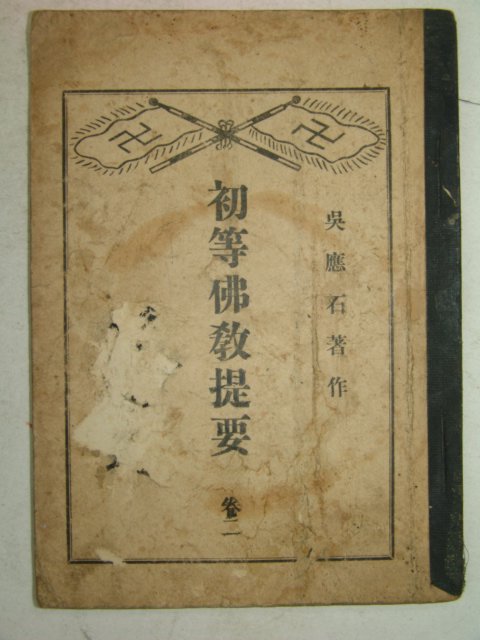 卍 卍
吳應石著作
初等佛敎提要
卷二